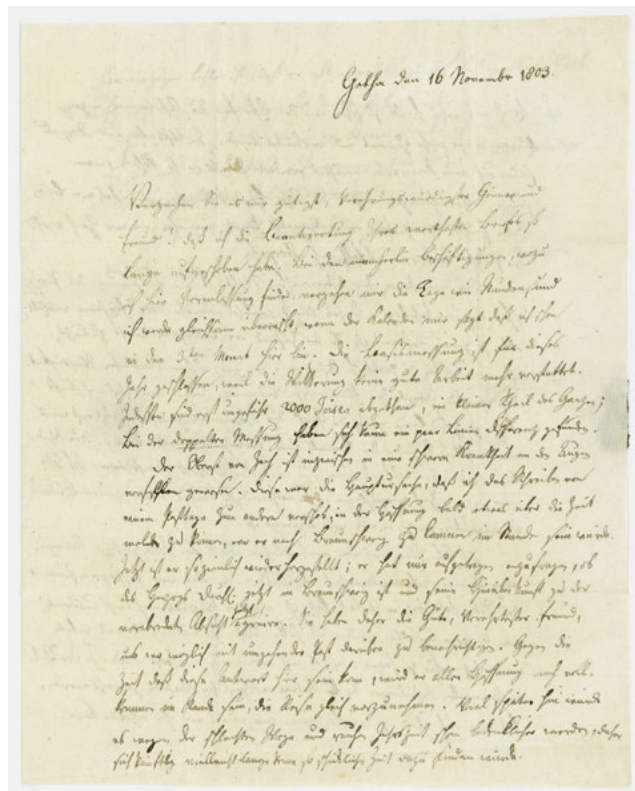 Gotha den 16 November 1803.
Verzeihen Sie es mir gütigst, Verehrungswürdigster Gönner und
Freund! daß ich die Beantwortung Ihres werthesten Briefes so
lange aufgeschoben habe. Bei den mancherlei Beschäftigungen, wozu
ich hier Veranlassung finde, vergehen mir die Tage wie Stunden, und
ich werde gleichsam überrascht, wenn der Kalender mir sagt daß ich schon
in den 3ten Monat hier bin. Die Basismessung ist für dieses
Jahr geschlossen, weil die Witterung keine gute Arbeit mehr verstattet.
Indessen sind erst ungefähr 2000 Toisen abgethan, ein kleiner Theil des Ganzen;
bei der doppelten Messung haben sich kaum ein paar Linien Differenz gefunden.
Der Oberst von Zach ist inzwischen in eine schwere Krankheit an den Augen
gewesen. Diese war die Hauptursache, daß ich das Schreiben von
einem Posttage zum andern verschob, in der Hoffnung bald etwas über die Zeit
melden zu können, wo er nach Braunschweig zu kommen im Stande sein würde.
Jetzt ist er so ziemlich wiederhergestellt; er hat mir aufgetragen anzufragen, ob
des Herzogs Durchl. jetzt in Braunschweig ist und seine Hinüberkunft zu der
verabredeten Absicht. Sie haben daher die Güte, Verehrtester Freund,
uns wo möglich mit umgehender Post darüber zu benachrichtigen. Gegen die
Zeit daß diese Antwort hier sein kann, wird er aller Hoffnung nach voll-
kommen im Stande sein, die Reise gleich vorzunehmen. Viel später hin würde
es wegen der schlechten Wege und rauhen Jahrszeit schon bedenklicher werden, daher
sich künftig vielleicht lange keine so schickliche Zeit dazu finden würde.